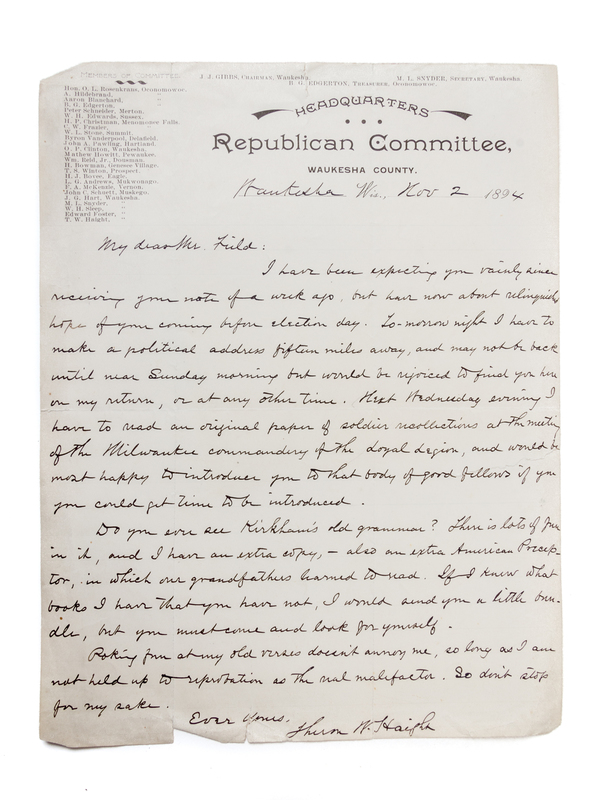 MEMBERS OF COMMITTEE
J. J. GIBBS, CHAIRMAN, Waukesha.
M. L. SNYDER, SECRETARY, Waukesha.
B. G. EDGERTON, TREASURER, Oconomowoc.
Hon. O. L. Rosenkrans, Oconomowoc.
A. Hildebrand, "
Aaron Blanchard, "
B. G. Edgerton, "
Peter Schneider, Merton.
W. H. Edwards, Sussex.
H. P. Christman, Menomonee Falls.
C. W. Frazier, "
W. L. Stone, Summit.
Byron Vanderpool, Delafield.
John A. Pawling, Hartland.
O. P. Clinton, Waukesha.
Mathew Howitt, Pewaukee.
Wm. Reid, Jr., Dousman.
H. Bowman, Genesee Village.
T. S. Winton, Prospect.
H. J. Bovee, Eagle.
L. G. Andrews, Mukwonago.
F. A. McKenzie, Vernon.
John C. Schuett, Muskego.
J. G. Hart, Waukesha.
M. L. Snyder, "
W. H. Sleep, "
Edward Foster, "
T. W. Haight, "
HEADQUARTERS
Republican Committee,
WAUKESHA COUNTY.
Waukesha Wis., Nov 2 1894
My dear Mr. Field:
I have been expecting you vainly since
receiving your note of a week ago, but have now about relinquished
hope of your coming before election day. To-morrow night I have to
make a political address fifteen miles away, and may not be back
until near Sunday morning but would be rejoiced to find you here
on my return, or at any other time. Next Wednesday evening I
have to read an original paper of soldier recollections at the meeting
of the Milwaukee commandery of the Loyal Legion, and would be
most happy to introduce you to that body of good fellows if you
you could get time to be introduced.
Do you ever see Kirkham's old grammar? There is lots of fun
in it, and I have an extra copy,- also an extra American Precep-
tor, in which our grandfathers learned to read. If I knew what
books I have that you have not, I would send you a little bun-
dle, but you must come and look for yourself.
Poking fun at my old verses doesn't annoy me, so long as I am
not held up to reprobation as the real malefactor. So don't stop
for my sake.
Ever yours,
Theron W. Haight